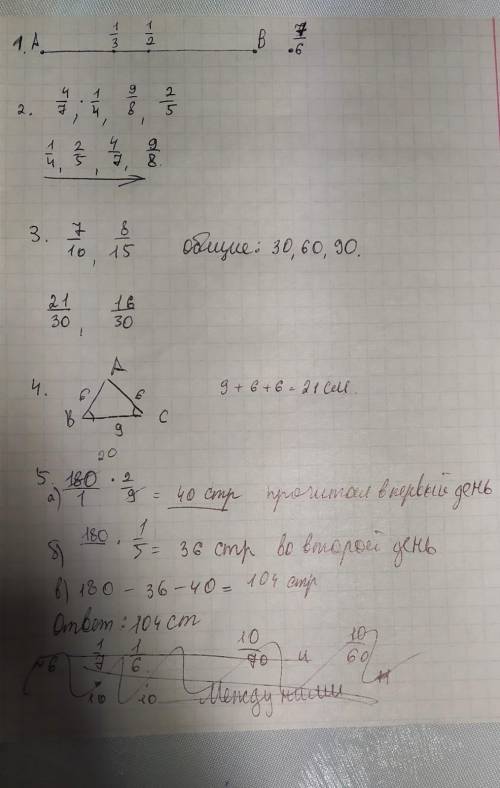 1. A 1/3 1/2 B 7/6
2. 4/7, 1/4, 9/8, 2/5
1/4, 2/5, 4/7, 9/8.
3. 7/10, 8/15 общие: 30, 60, 90.
21/30, 16/30
4. A B C 6 6 9 9 + 6 + 6 = 21 см.
5. 20
а) 180/1 · 2/9 = 40 стр прочитал в первый день
б) 180 · 1/5 = 36 стр во второй день
в) 180 - 36 - 40 = 104 стр
Ответ: 104 ст
№6 1/7 1/6 10/70 и 10/60
10 10 Между ними